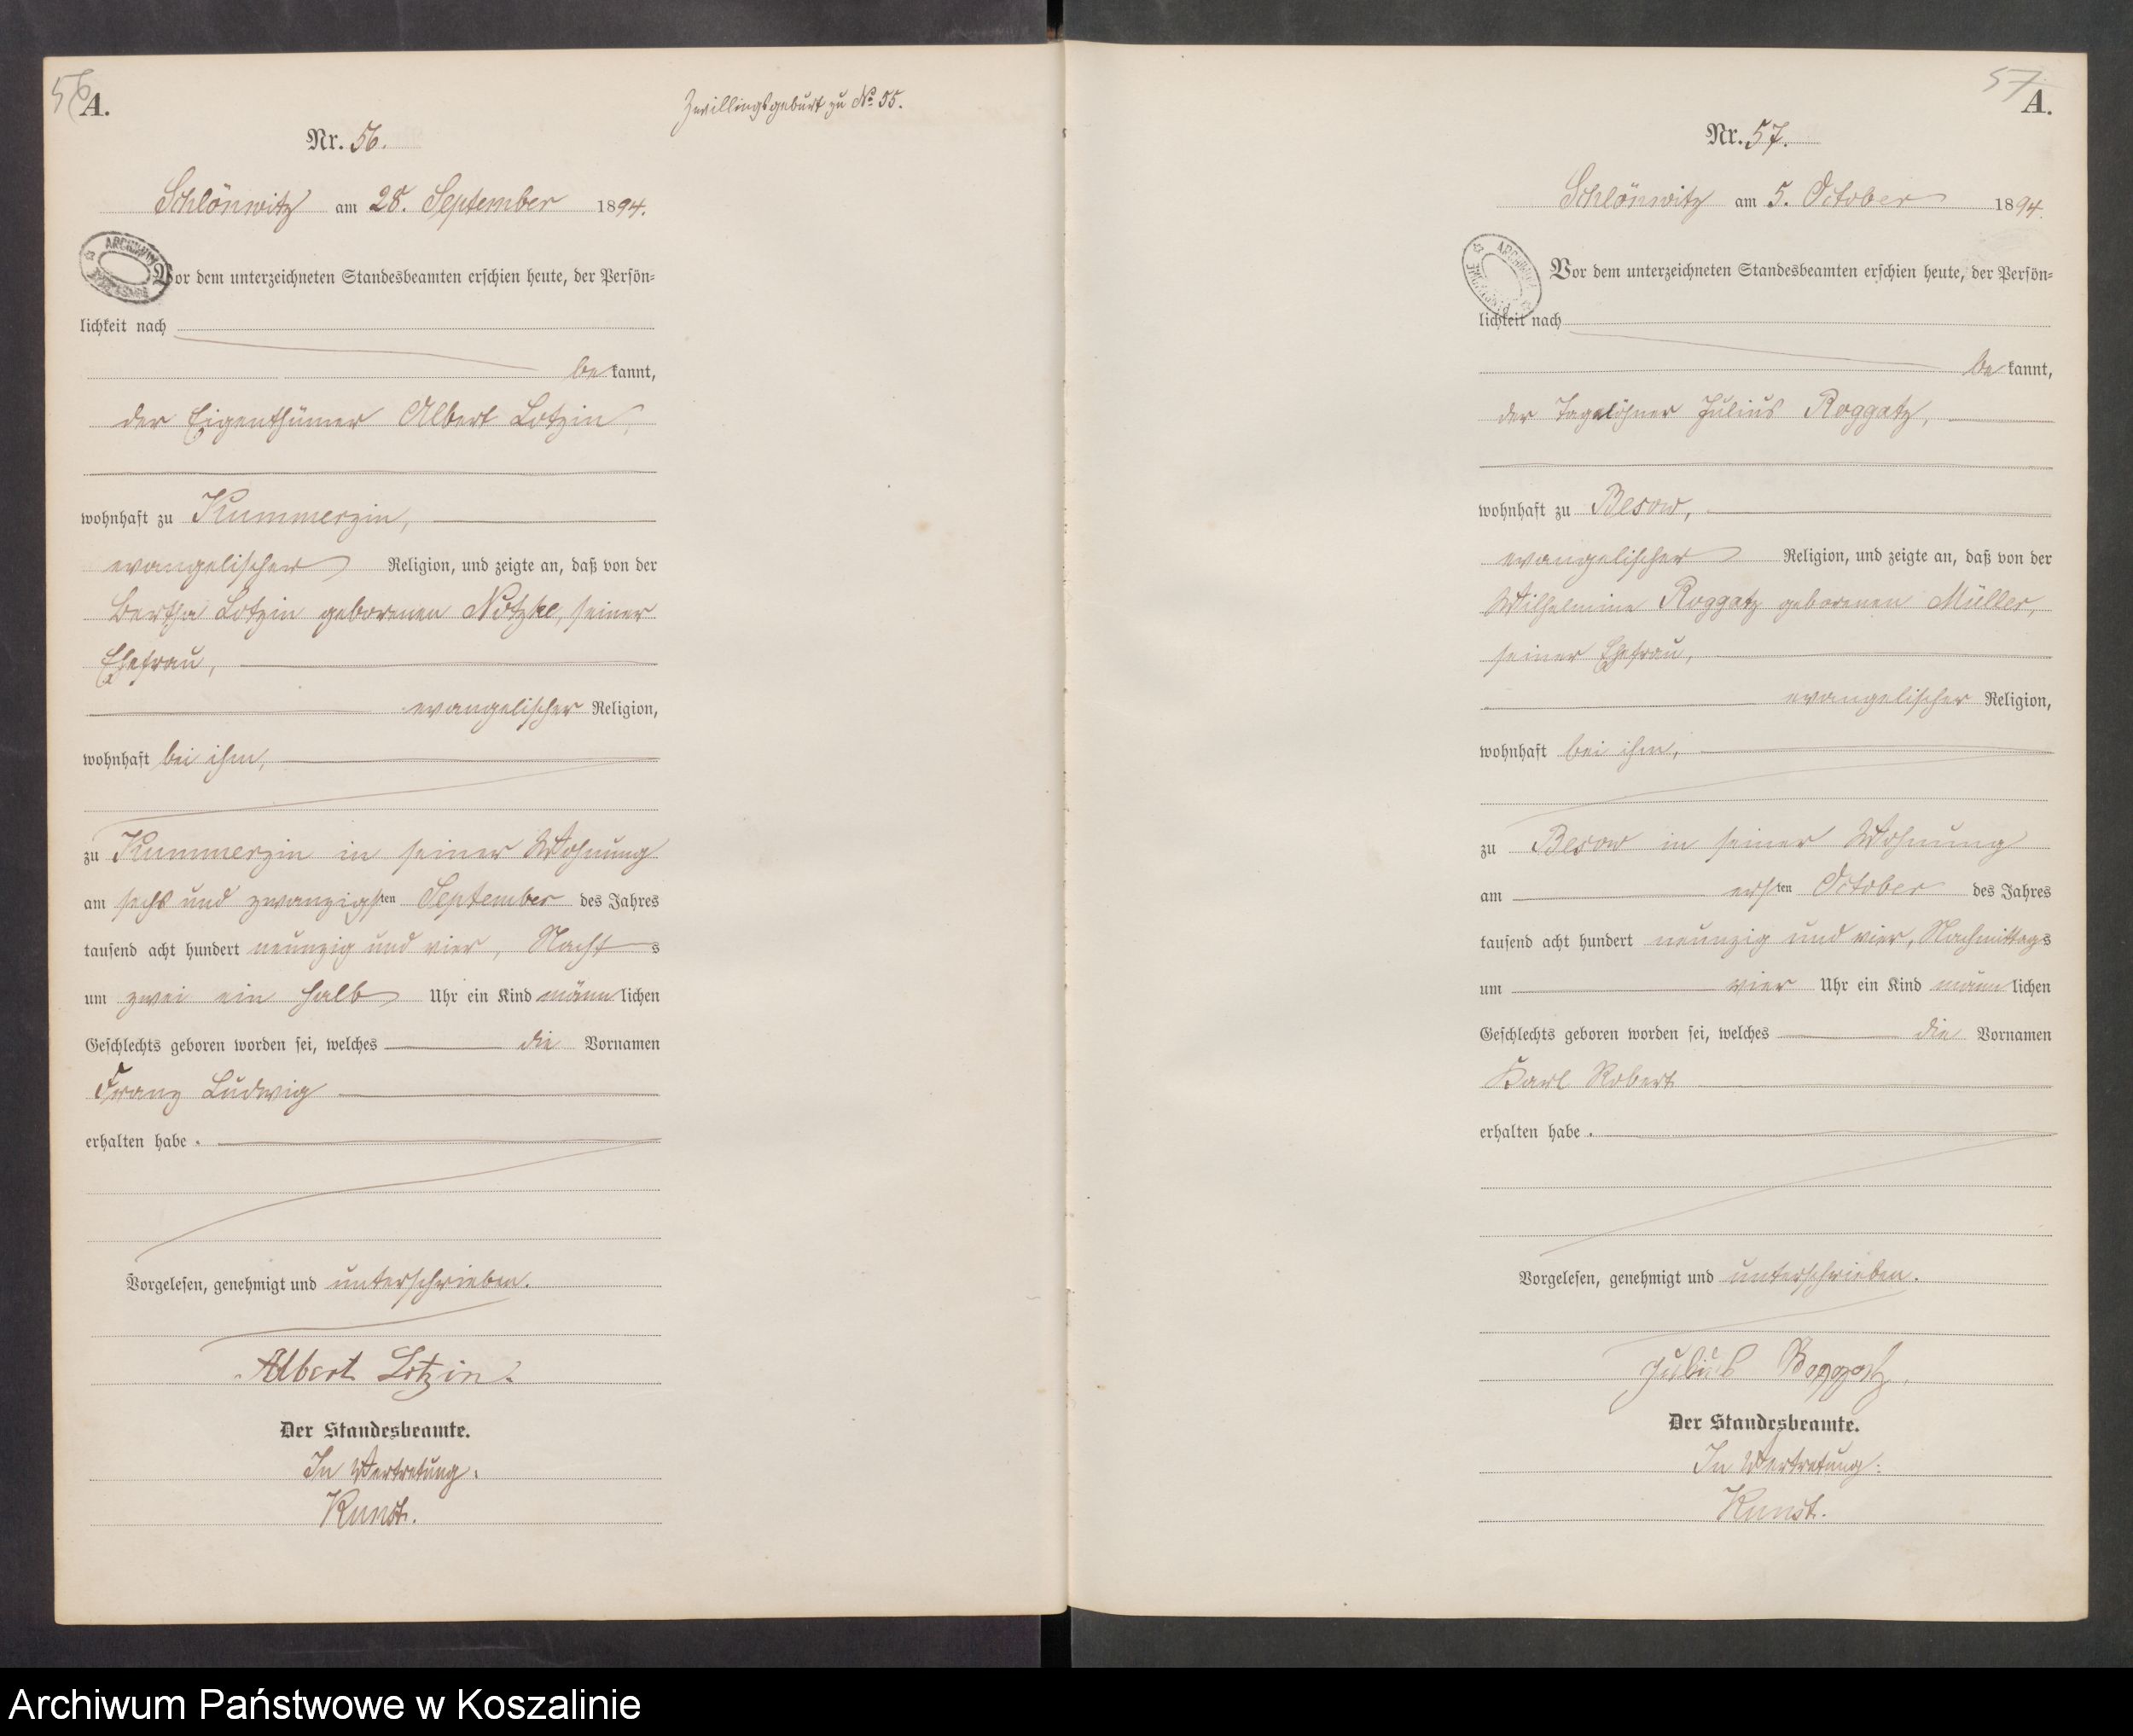 56
A.
Zwillingsgeburt zu No. 55.
Nr. 56.
Schlönwitz am 28. September 1894.
ARCHIWUM
Vor dem unterzeichneten Standesbeamten erschien heute, der Persön=
lichkeit nach
bekannt,
der Eigenthümer Albert Lotzin,
wohnhaft zu Kummerzin,
evangelischer Religion, und zeigte an, daß von der
Bertha Lotzin geborenen Nötzke, seiner
Ehefrau,
evangelischer Religion,
wohnhaft bei ihm,
zu Kummerzin in seiner Wohnung
am sechs und zwanzigsten September des Jahres
tausend acht hundert neunzig und vier, Nachts
um zwei ein halb Uhr ein Kind männlichen
Geschlechts geboren worden sei, welches die Vornamen
Franz Ludwig
erhalten habe.
Vorgelesen, genehmigt und unterschrieben.
Albert Lotzin.
Der Standesbeamte.
In Vertretung:
Kunst.
57
A.
Nr. 57.
Schlönwitz am 5. October 1894.
ARCHIWUM
Vor dem unterzeichneten Standesbeamten erschien heute, der Persön=
lichkeit nach
bekannt,
der Tagelöhner Julius Roggatz,
wohnhaft zu Besow,
evangelischer Religion, und zeigte an, daß von der
Wilhelmine Roggatz geborenen Müller,
seiner Ehefrau,
evangelischer Religion,
wohnhaft bei ihm,
zu Besow in seiner Wohnung
am ersten October des Jahres
tausend acht hundert neunzig und vier, Nachmittags
um vier Uhr ein Kind männlichen
Geschlechts geboren worden sei, welches die Vornamen
Karl Robert
erhalten habe.
Vorgelesen, genehmigt und unterschrieben.
Julius Roggatz.
Der Standesbeamte.
In Vertretung:
Kunst.
Archiwum Państwowe w Koszalinie